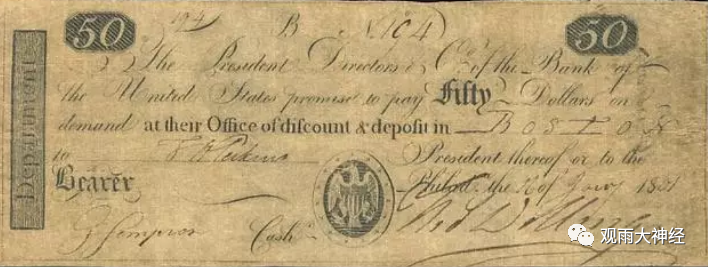 50 B No 104 50
The President Directors & Co. of the Bank of
the United States promise to pay Fifty Dollars on
demand at their Office of discount & deposit in BOSTON
to President thereof or to the
Bearer the of
Cash
Department
观雨大神经